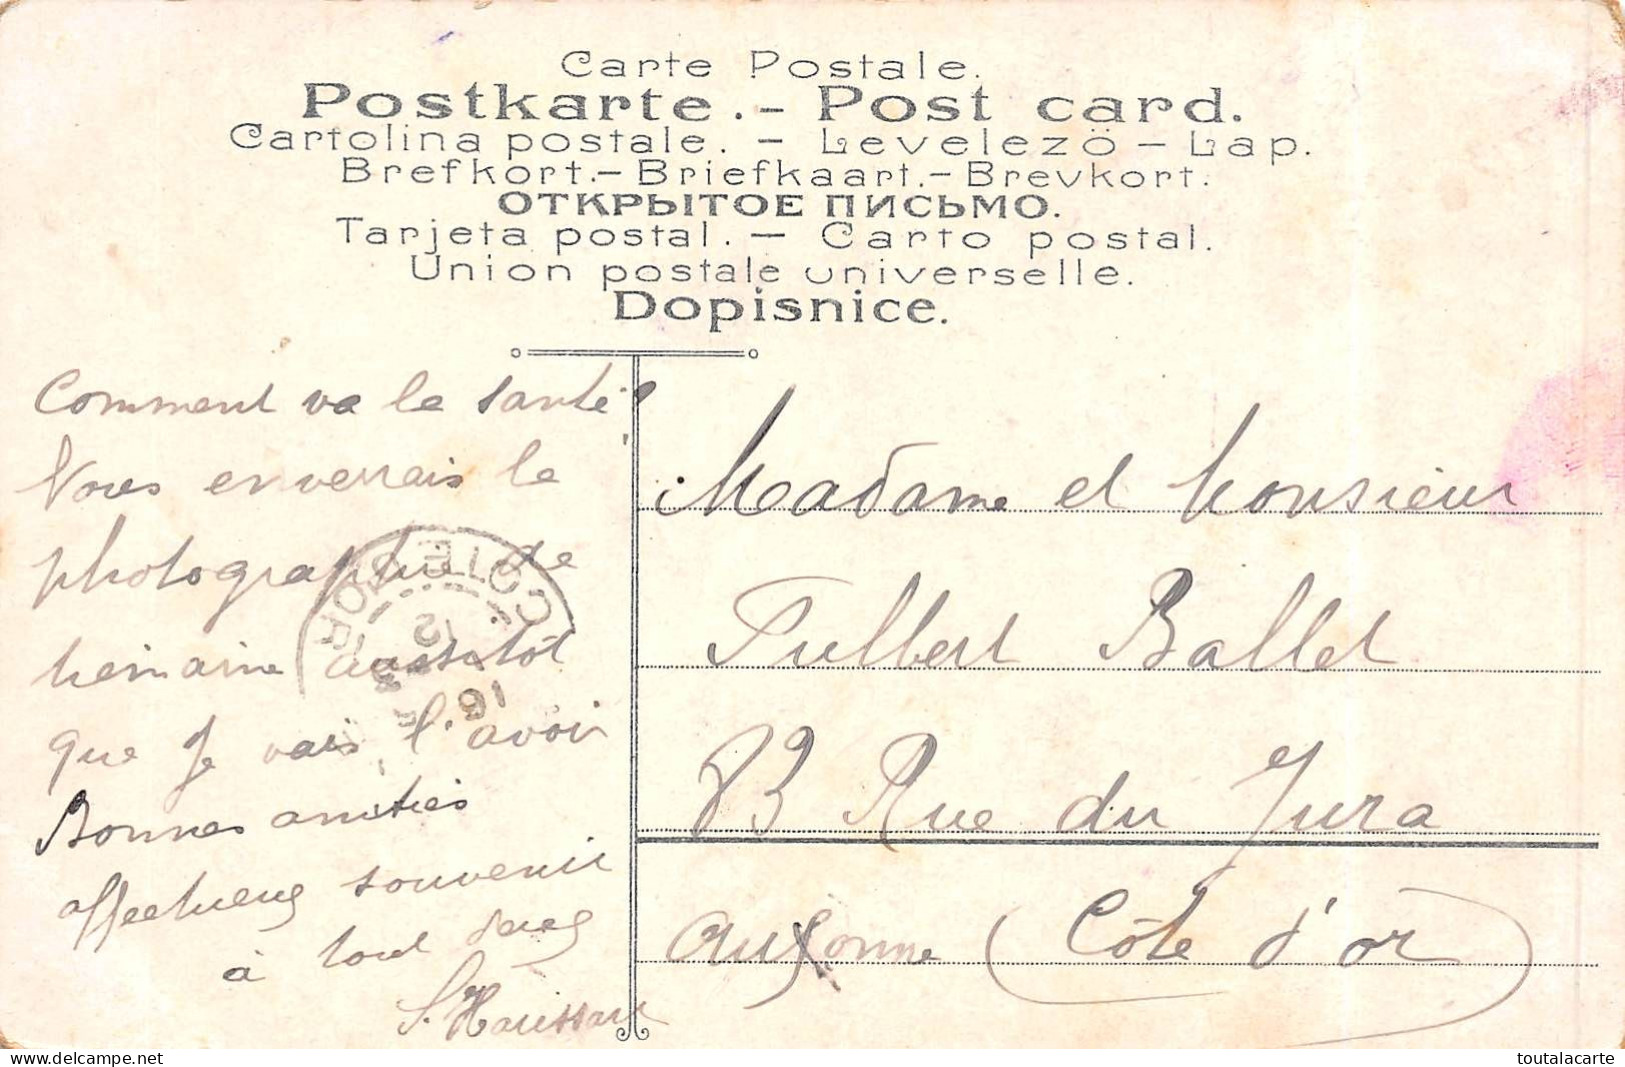 Carte Postale.
Postkarte.- Post card.
Cartolina postale. - Levelezö - Lap.
Brefkort.- Briefkaart.- Brevkort.
ОТКРЫТОЕ ПИСЬМО.
Tarjeta postal. - Carto postal.
Union postale universelle.
Dopisnice.
Comment va le santé
Vous enverrais le
photographie de
Germaine aussitôt
que je vais l'avoir
Bonnes amitiés
affectueux souvenir
à tout deux
COTE D'OR
12
16
Madame et Monsieur
Fulbert Ballet
83 Rue du Jura
Auxonne (Côte d'or)
delcampe.net
toutalacarte